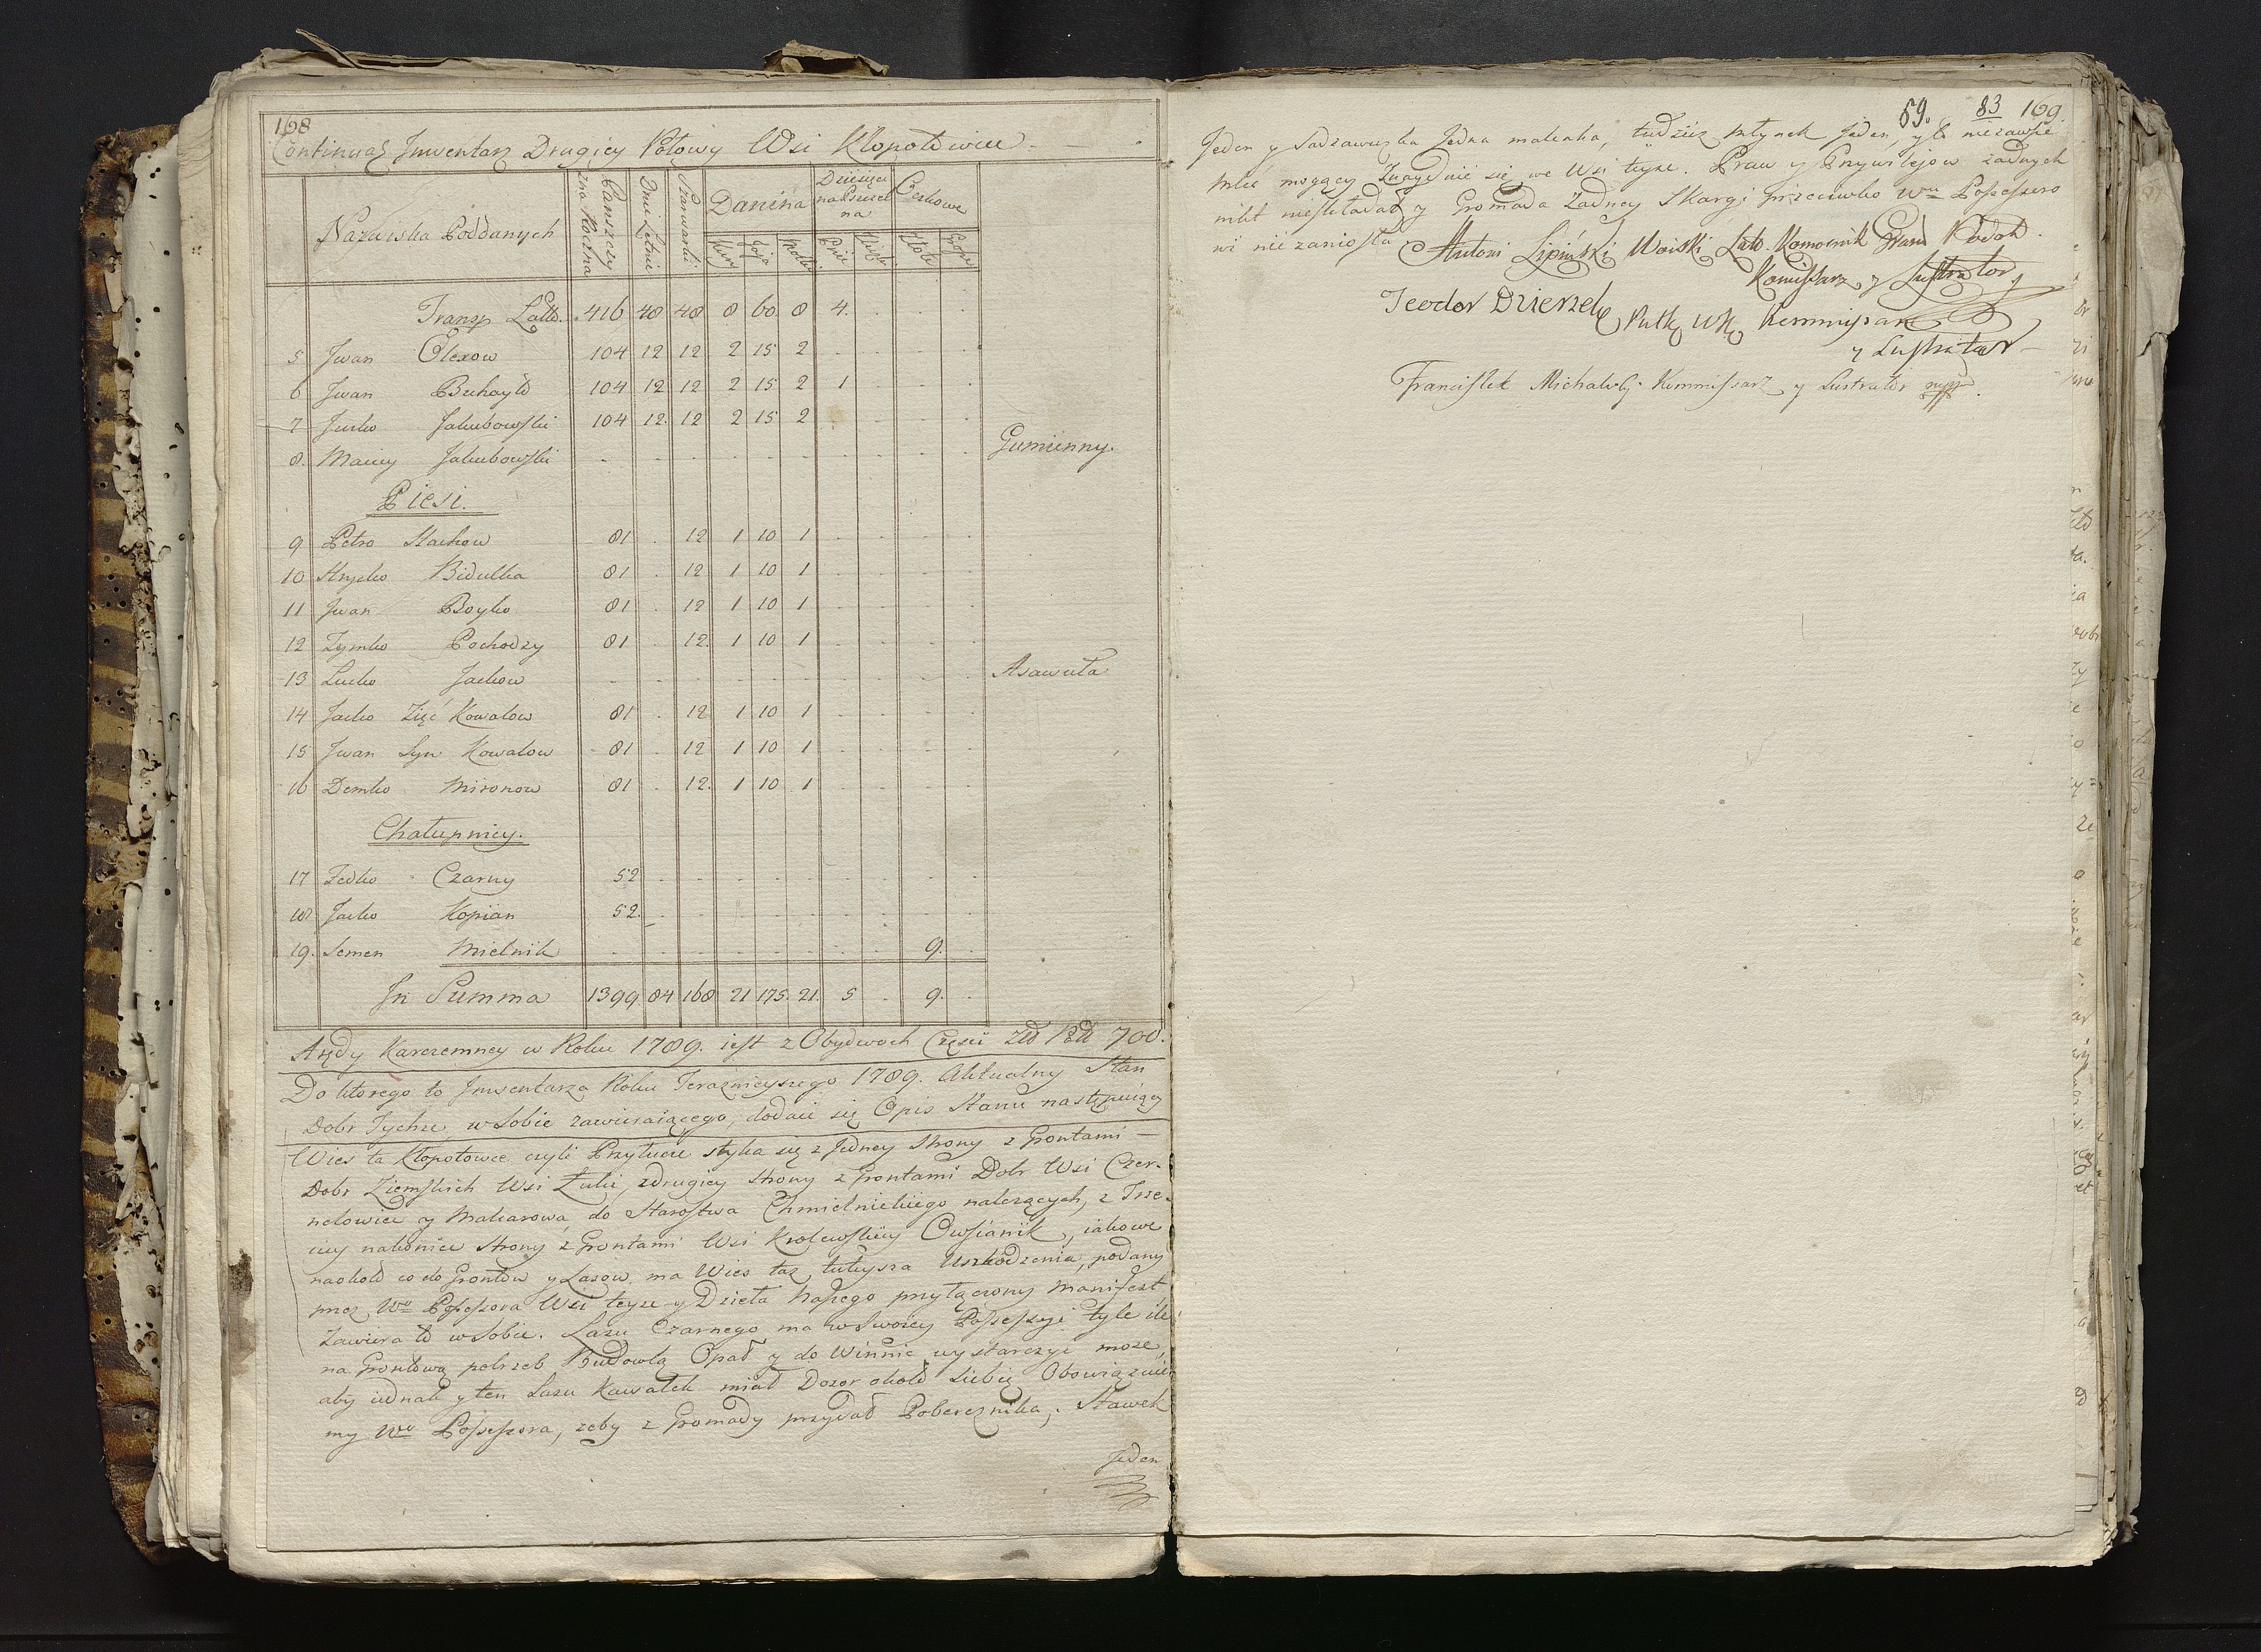 168
Continuaō Jnwentarz Drugiey Połowy Wsi Kłopotowiec
Nazwiska Poddanych
Panszczyzna Roczna
Dnie Letnie
Szarwarki
Danina
Kury
Jaja
Motki
Dziesięcina Pszczelna
Pnie
Czynszowe
Złote
Grosze
Transp Latto. 416 48 48 8 60 8 4.
5 Jwan Olexow 104 12 12 2 15 2
6 Jwan Buhayło 104 12 12 2 15 2 1
7 Jusko Jakubowski 104 12. 12 2 15 2
8. Maciey Jakubowski Gumienny.
Piesi.
9 Petro Stachow 81 12 1 10 1
10 Hrycko Bidulka 81 12 1 10 1
11 Jwan Boyko 81 12 1 10 1
12 Tymko Pochodzy 81 12. 1 10 1
13 Lucko Jackow Asawuła
14 Jacko Zięć Kowalow 81 12 1 10 1
15 Jwan Syn Kowalow 81 12 1 10 1
16 Demko Mironow 81 12. 1 10 1
Chałupnicy.
17 Fedko Czarny 52
18 Jacko Kopian 52.
19. Semen Mielnik 9.
Jn Summa 1399. 84 168 21 175. 21. 5 9.
Arędy Karczemney w Roku 1789. iest z Obydwoch Części Złł Płł 700.
Do ktorego to Jnwentarza Roku Teraznieyszego 1789. Aktualny Stan
Dobr Tychże w Sobie zawieraiącego, dodaie się Opis Stanu następuiący
Wies ta Kłopotowce czyli Przyłuce styka się z Jedney Strony z Grontami
Dobr Ziemskich Wsi Łuki, z drugiey Strony z Grontami Dobr Wsi Czer-
nelowiec y Makarowa do Starostwa Chmielnickiego należących, z Trze-
ciey nakoniec Strony z Grontami Wsi Krolewskiey Owsianik, iakowe
naokoło co do Grontow y Lasow, ma Wies taż tuteysza Uszkodzenia, podany
przez Wo Possessora Wsi teyże y Dzieła Naszego przyłączony Manifest
Zawiera to w Sobie. Lasu Czarnego ma w Swoiey Possessyi tyle ile
na Grontową potrzeb Budowlą Opał y do Winnic wystarczyć może,
aby iednak y ten Lasu Kawałek miał Dozor około Siebie Obowiązuie-
my Wo Possessora, żeby z Gromady przydał Pobereznika, Stawek
Jeden
59. 83 169.
Jeden y Sadzawuszka Jedna malenka, tudziesz Młynek Jeden, y to niezawsze
Mleć mogący Znayduie się we Wsi teyże. Praw y Przywilejow żadnych
nikt nieskładał, y Gromada Żadney Skargi przeciwko Wu Possessoro
wi niezaniosła
Antoni Lipiński Woiski Lato. Komornik Grand Podol.
Komissarz y Lustrator
Teodor Dzierżek Putk WK Kommissarz
y Lustrator
Franciszek Michalski Kommissarz y Lustrator mpp